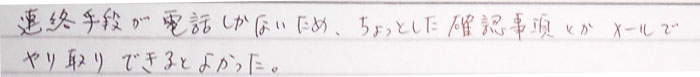 連絡手段が電話しかないため、ちょっとした確認事項とかメールで
やり取りできるとよかった。